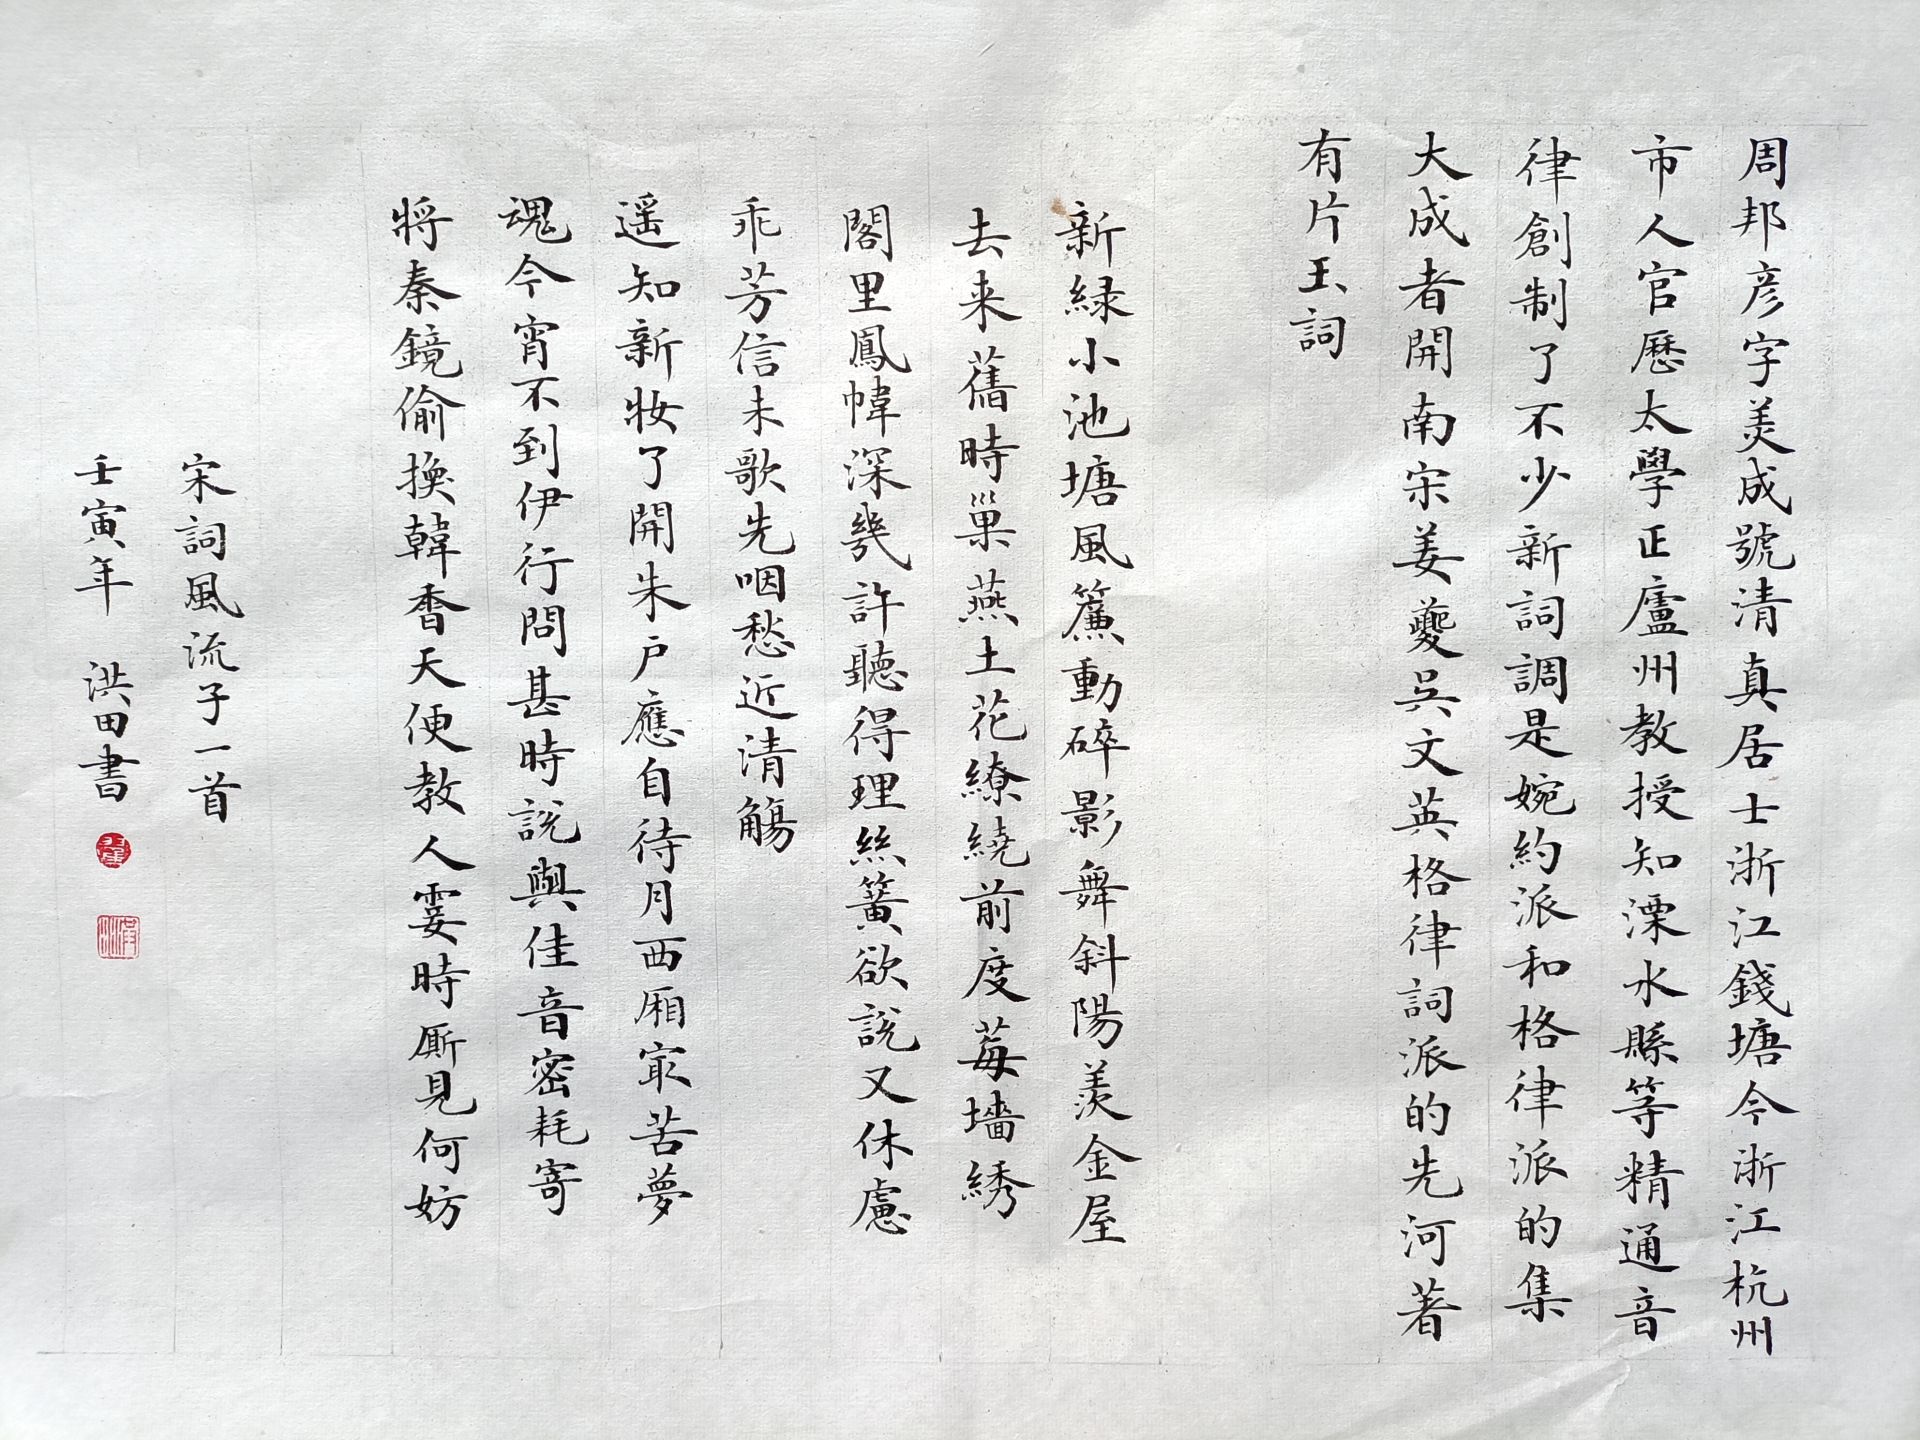 周邦彦字美成號清真居士浙江錢塘今浙江杭州
市人官歷太學正廬州教授知溧水縣等精通音
律創制了不少新詞調是婉約派和格律派的集
大成者開南宋姜夔吳文英格律詞派的先河著
有片玉詞
新緑小池塘風簾動碎影舞斜陽羨金屋
去来舊時巢燕土花繚繞前度莓墻綉
閣里鳳幃深幾許聽得理絲簧欲説又休慮
乖芳信未歌先咽愁近清觴
遥知新妝了開朱户應自待月西厢寂苦夢
魂今宵不到伊行問甚時説與佳音密耗寄
將秦鏡偷換韓香天便教人霎時厮見何妨
宋詞風流子一首
壬寅年 洪田書